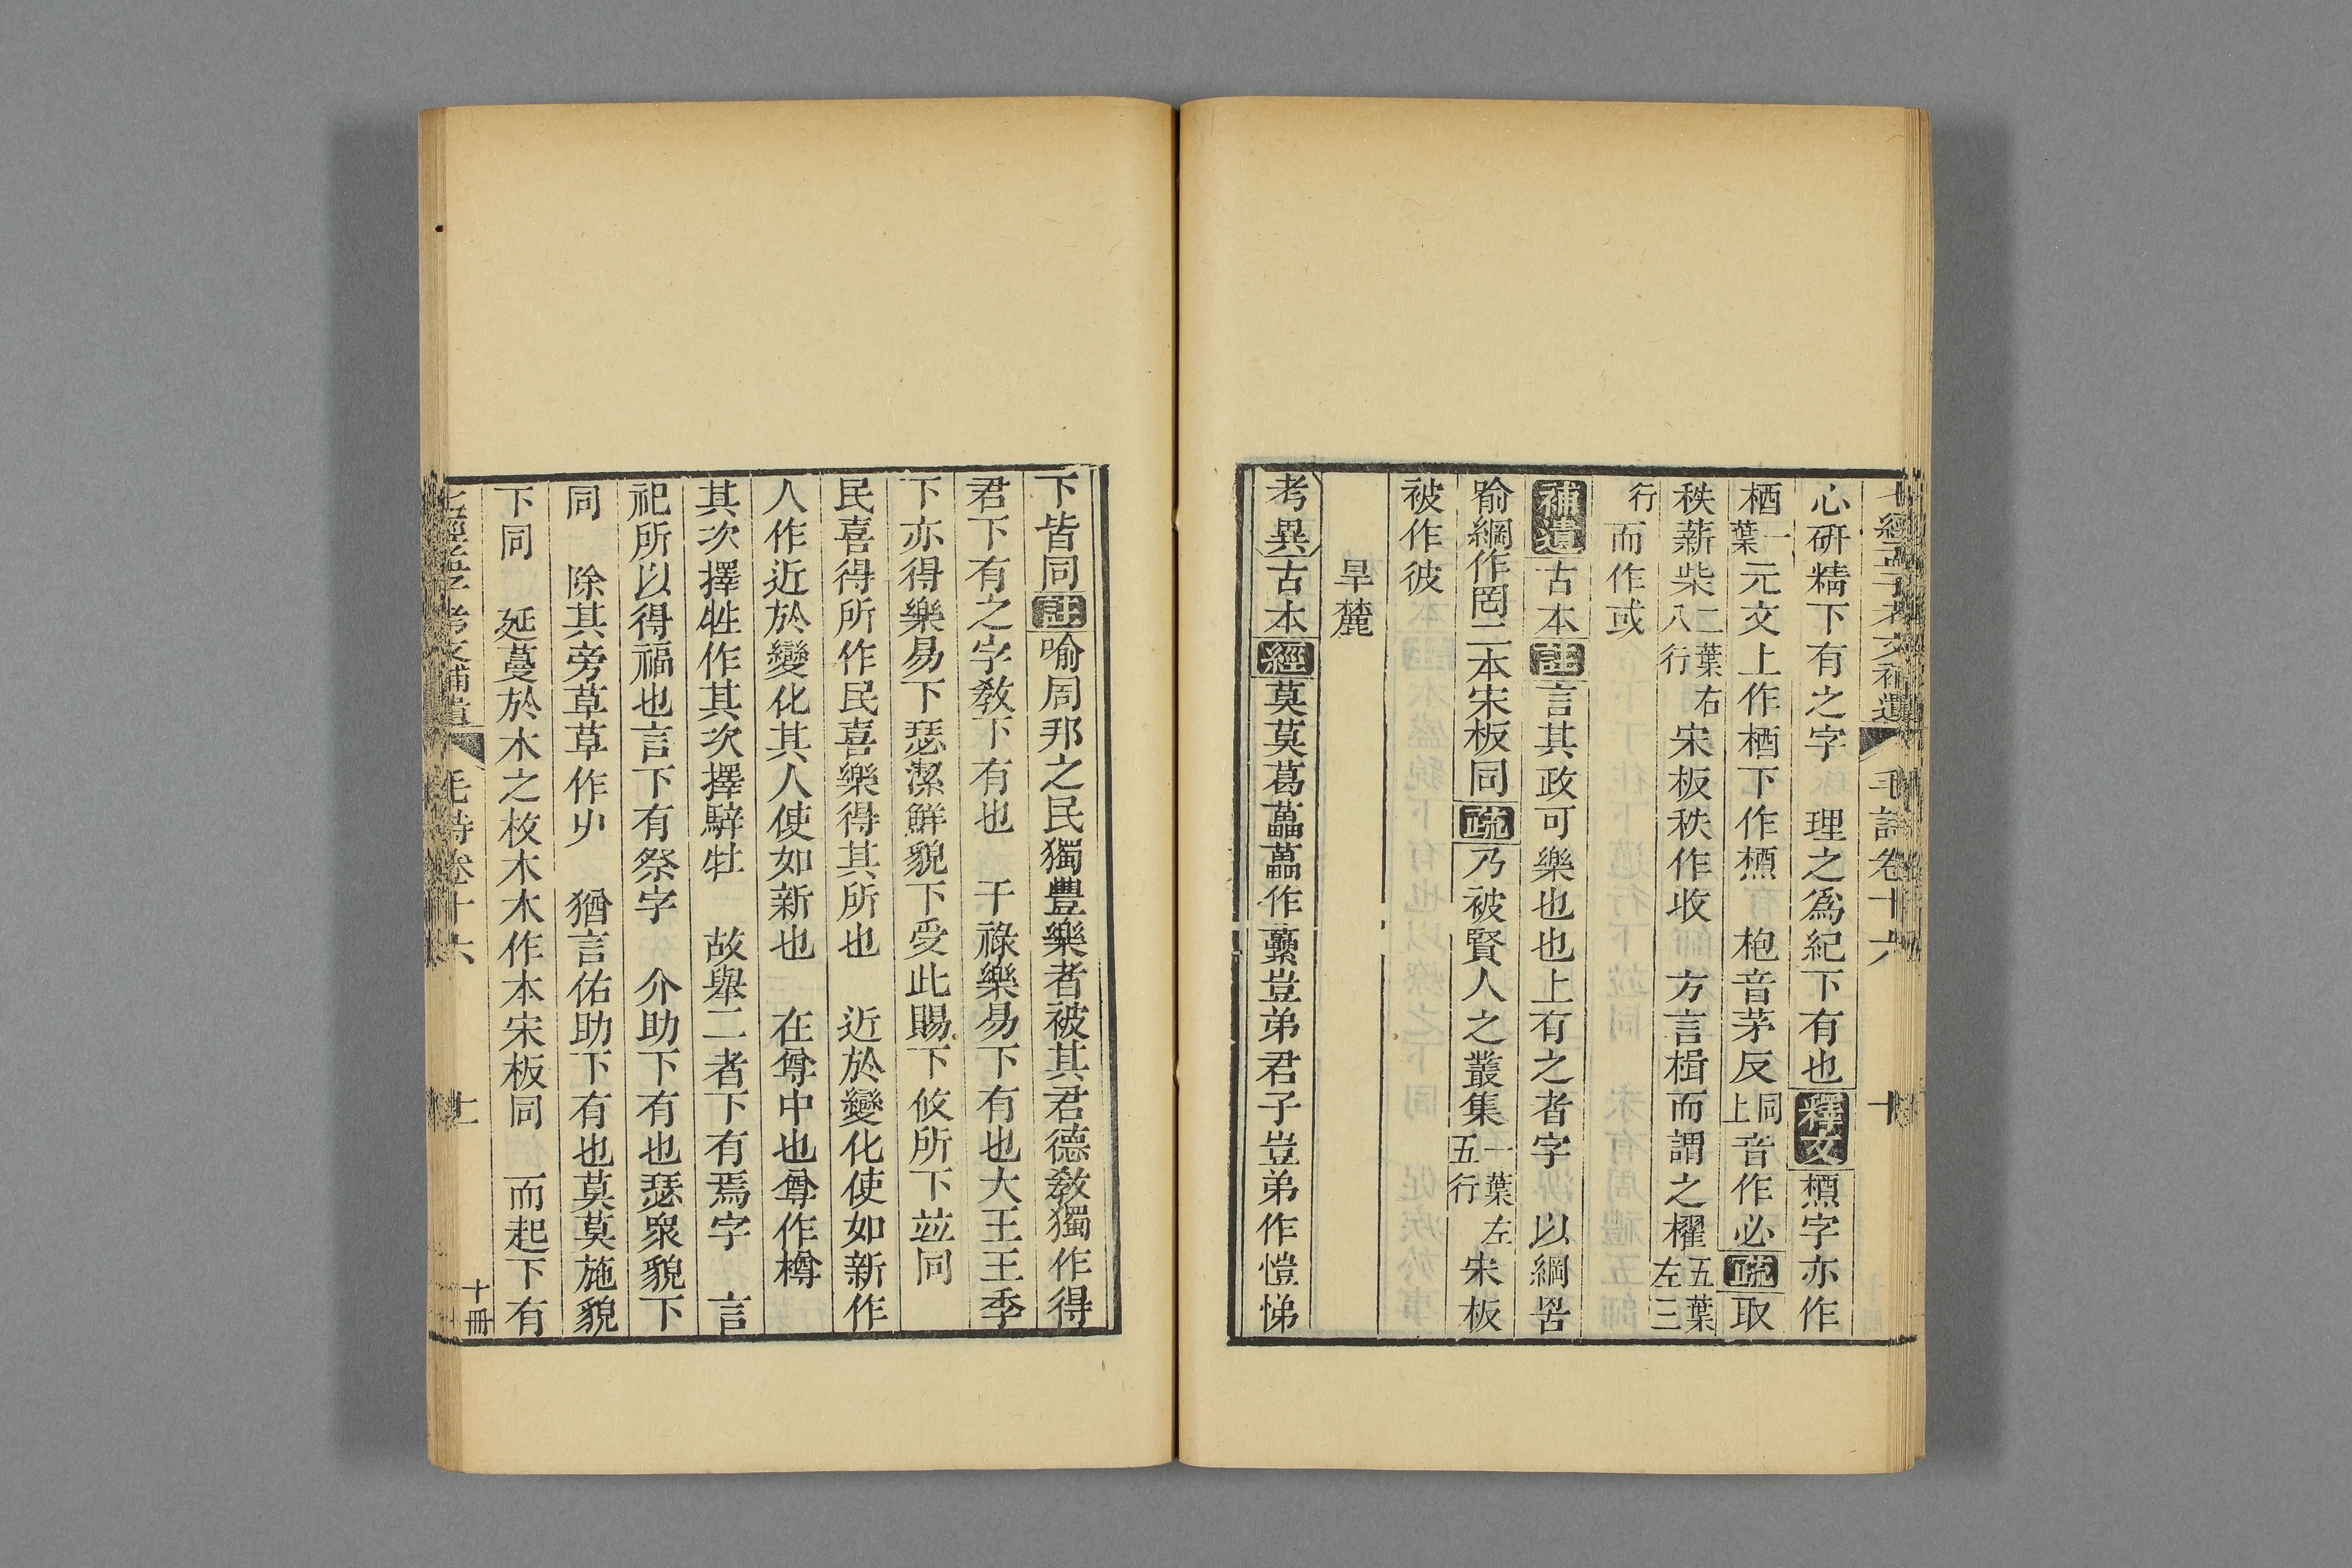 七經孟子考文補遺 毛詩卷十六 十
心研精下有之字 理之爲紀下有也釋文櫝字亦作
栖一葉元文上作栖下作槱 枹音茅反同上音作必疏取
秩薪柴二葉右八行宋板秩作收 方言楫而謂之櫂五葉左三
行而作或
補遺古本註言其政可樂也也上有之者字 以綱罟
喻綱作罔二本宋板同疏乃被賢人之叢集一葉左五行宋板
被作彼
旱麓
考異古本經莫莫葛藟藟作虆豈弟君子豈弟作愷悌
下皆同註喻周邦之民獨豐樂者被其君德敎獨作得
君下有之字敎下有也 干祿樂易下有也大王王季
下亦得樂易下瑟潔鮮貌下受此賜下攸所下竝同
民喜得所作民喜樂得其所也 近於變化使如新作
人作近於變化其人使如新也 在尊中也尊作樽
其次擇牲作其次擇騂牡 故舉二者下有焉字 言
祀所以得福也言下有祭字 介助下有也瑟衆貌下
同 除其旁草草作屮 猶言佑助下有也莫莫施貌
下同 延蔓於木之枚木木作本宋板同 而起下有
七經孟子考文補遺 毛詩卷十六 十一 十冊